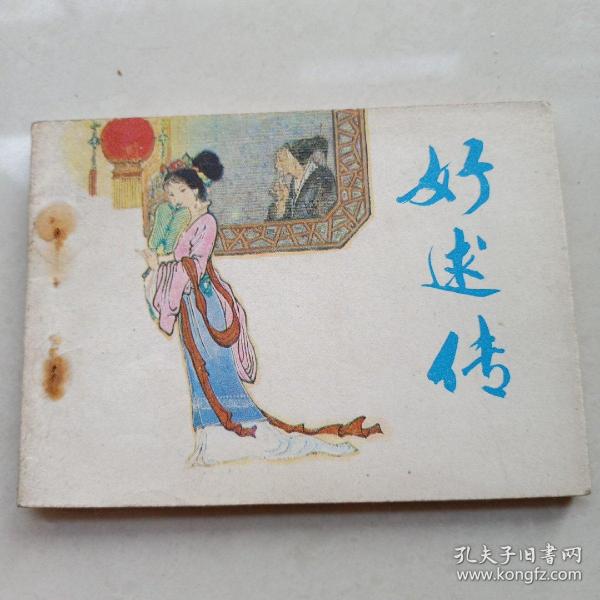 好逑传
孔夫子旧書网
www.kongfz.com